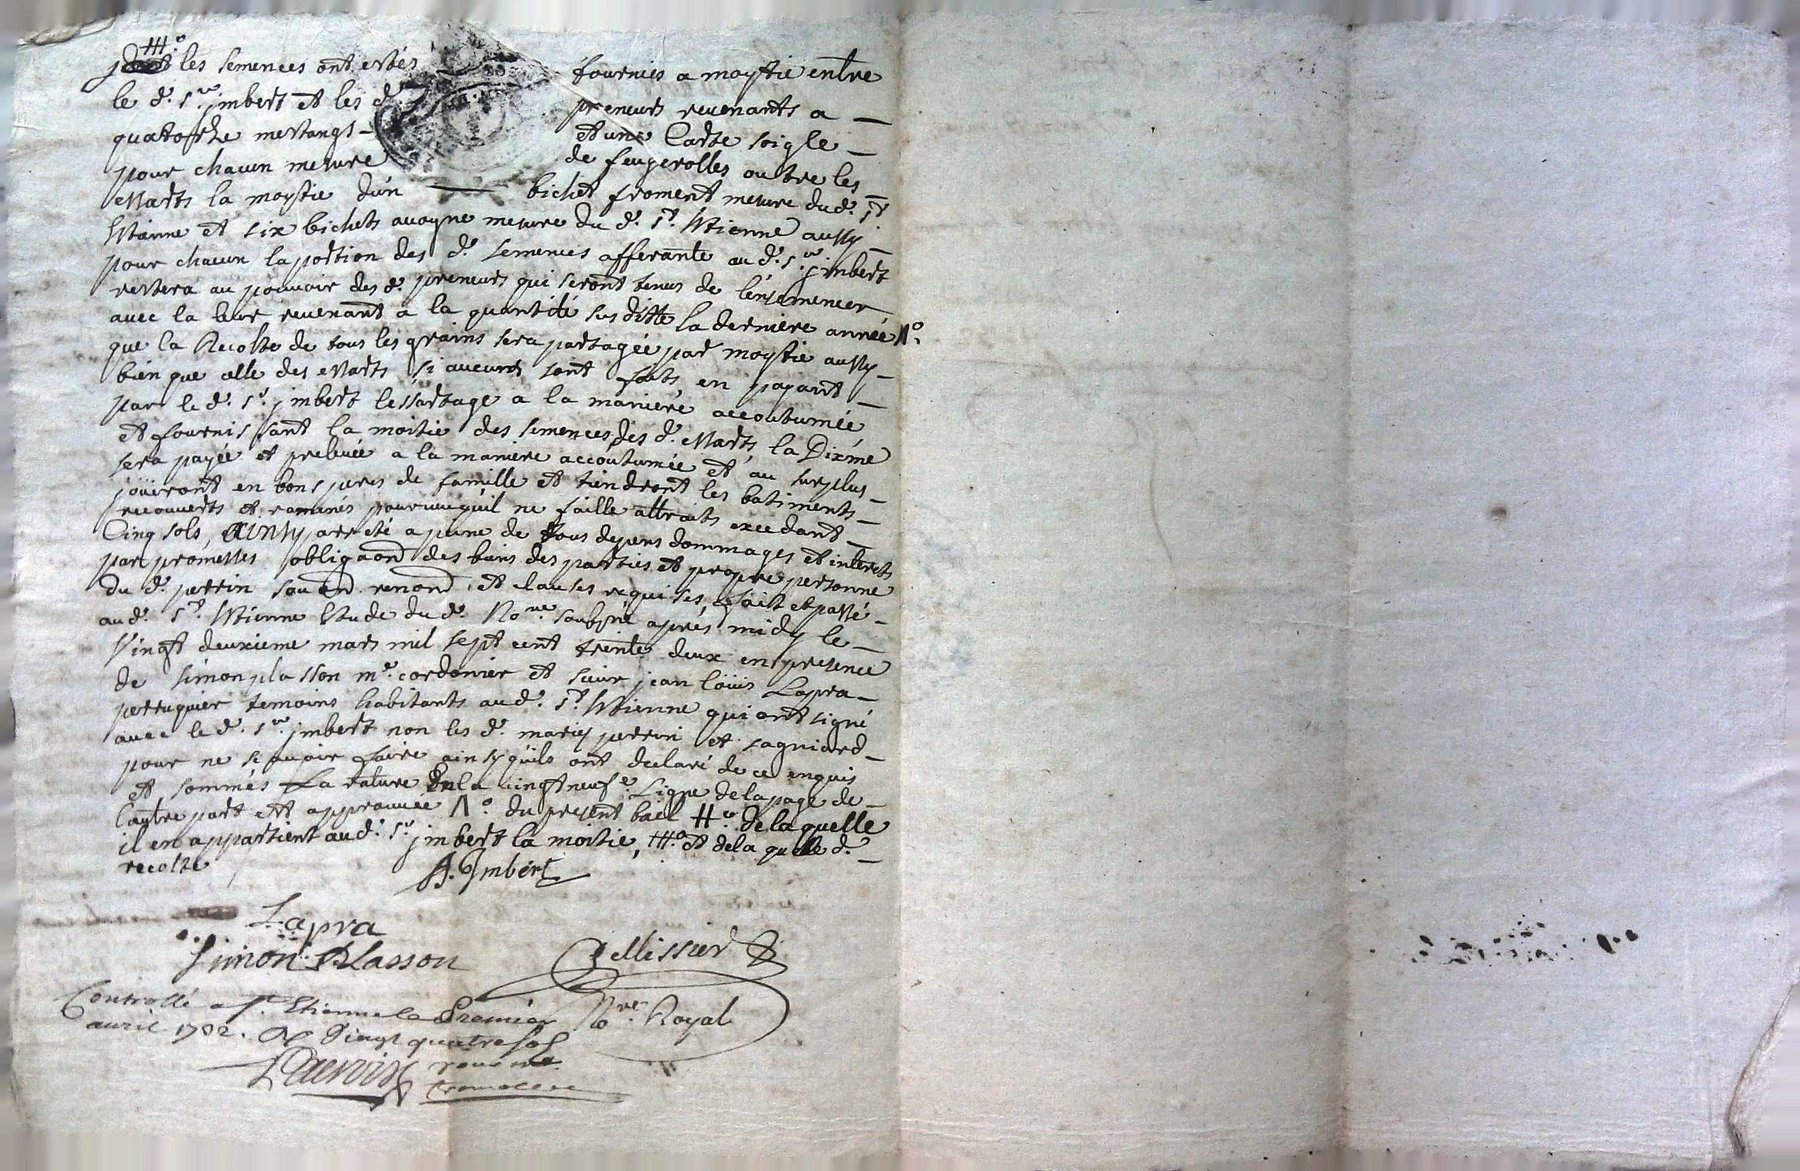 III.º
les semences ont estés fournies a moytie entre
le d. sr. jmbert et les d. preneurs revenants a
quatorze mestangs et une Carte soigle
pour chacun mesure de feugerolles outre les
essarts la moytie d'un bichet froment mesure dud. st
Estienne et six bichets avoyne mesure du d. st. Estienne aussy
pour chacun la portion des d. semences afferante au d. sr. jmbert
restera au pouvoir des d. preneurs qui seront tenus de l'ensemencer
avec la leur revenant a la quantité susditte la derniere année Λº.
que la Recolte de tous les grains sera partagée par moytie aussy
bien que celle des essarts si aucuns sont faits en payant
par le d. sr. jmbert l'essartage a la maniere accoutumée
et fournissant la moitie des semences des d. essarts, la Dixme
sera payée et prelevée a la maniere accoutumée et au surplus
joüiront en bons peres de famille et tiendront les batiments
recouverts et ramenés pourvuequ'il ne faille attraits excedant
Cinq sols, Ainsy arresté a peine de tous depens dommages et interets
par promesses obligaõns des biens des parties et propre personne
du d. perrin renonõ. et clauses requises, fait et passé
aud. st. Estienne Etude du d. Nore. soubsné après midy le
Vingt deuxieme mars mil sept cent trente deux en presence
de simon plasson me. cordonier et sieur jean loüis Lapra
perruquier temoins habitants aud. st. Estienne qui ont signé
avec le d. sr. jmbert non les d. mariés perrin et sagniard
pour ne sçavoir faire ainsy qu'ils ont declaré de ce enquis
et sommés La rature en la vingt neufe. Ligne de la page de
l'autre part est approuvée Λº. du present bail IIº. de laquelle
il en appartient aud. sr. jmbert la moitie, IIIº. et de la quelle d.
recolte
A. Jmbert
Lapra
Simon Plasson
Pellissier
Nore. Royal
Controllé a st. Etienne le Premier
avril 1732. R Vingt quatre sols